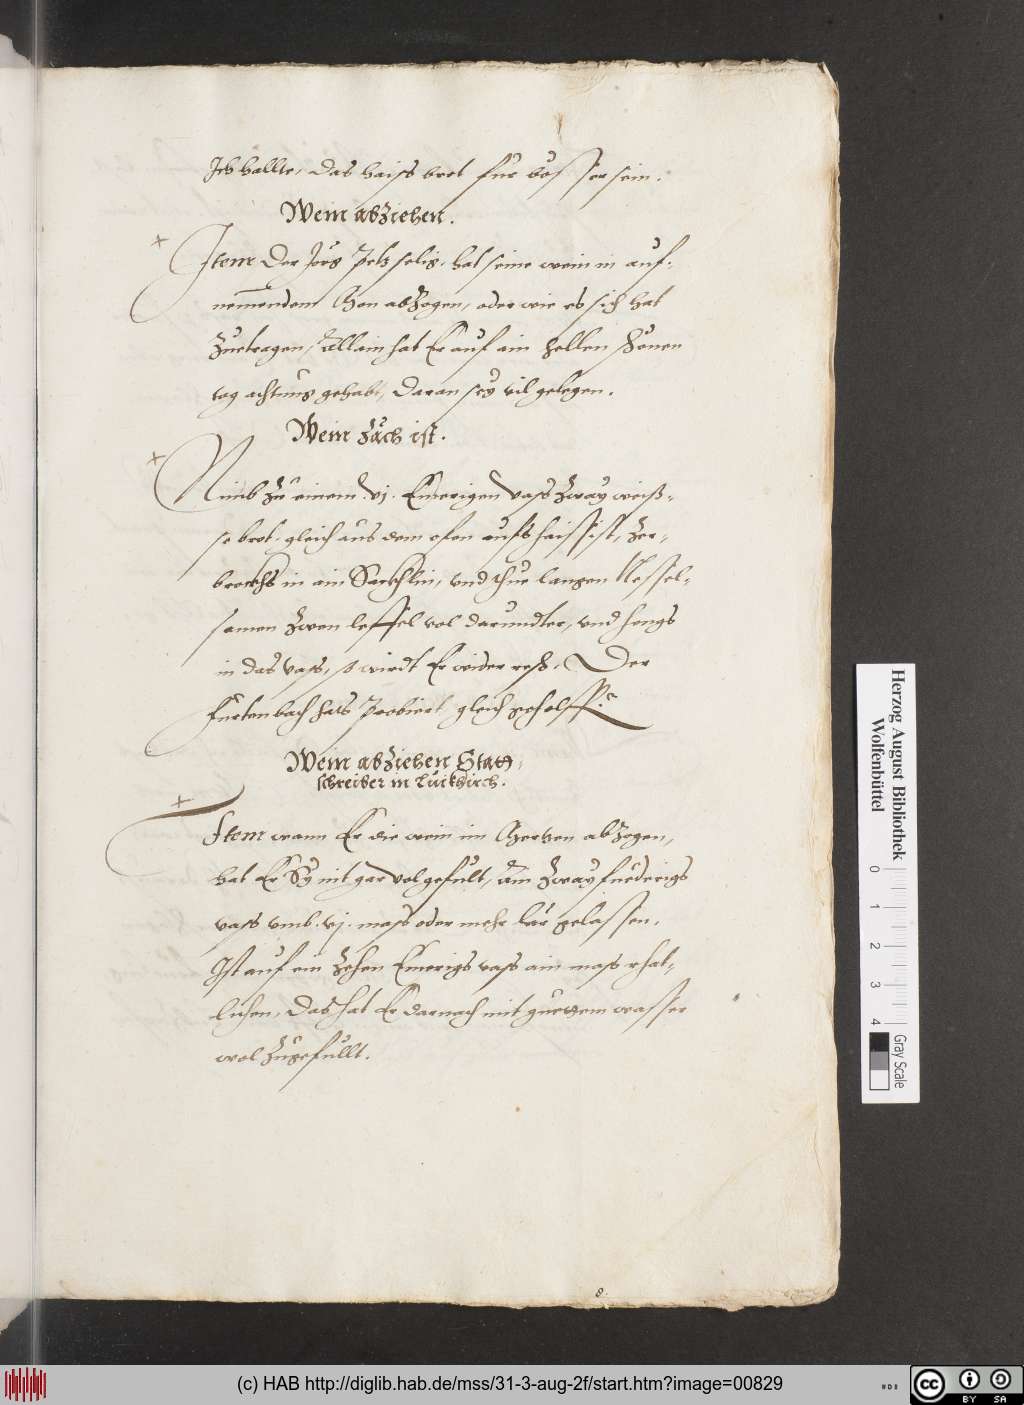 Ich hallte, das haiss brot für bösser sein.
Wein abziehen.
Item Der Jörg Peltz selig, hat seine wein in auf-
nemendem Mon abzogen, oder wie es sich hat
zuetragen, Allain hat Er auf ain hellen schönen
tag achtung gehabt, daran sey vil gelegen.
Wein zäch ist.
Nimb zu einem .vj. Emerigen vass zway weiss-
se brot, gleich aus dem ofen aufs haissist, zer-
brockhs in ain Säckhlin, und thue langen Nessel-
samen zwen leffel vol darundter, und hengs
in das vass, so wirdt Er wider resch, Der
Furtenbach hats Probiert gleich geholffen.
Wein abziehen Statt
schreiber in Lütkirch.
Item wann Er die wein im abzogen,
hat Er Sy nit gar vol gefült, Ain zway fuederigs
vass umb .vj. mass oder mehr lär gelassen.
Ist auf ein zehen Emerigs vass ain mass
lichen, Das hat Er darnach mit guettem wasser
wol zugefüllt.
8
Herzog August Bibliothek
Wolfenbüttel
0 1 2 3 4
Gray Scale
(c) HAB http://diglib.hab.de/mss/31-3-aug-2f/start.htm?image=00829
HAB
cc BY SA